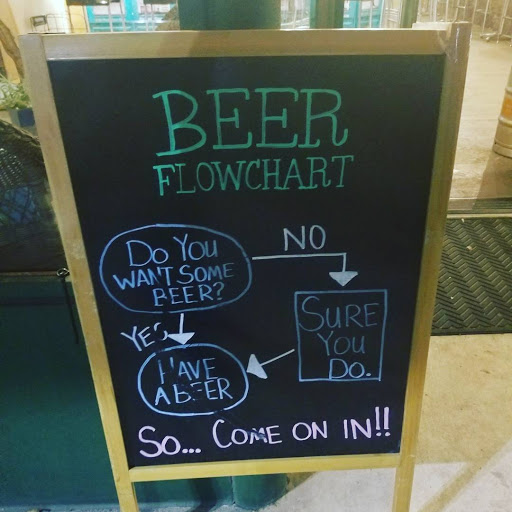 BEER
FLOWCHART
DO YOU
WANT SOME
BEER?
NO
SURE
YOU
DO.
YES
HAVE
A BEER
SO... COME ON IN!!